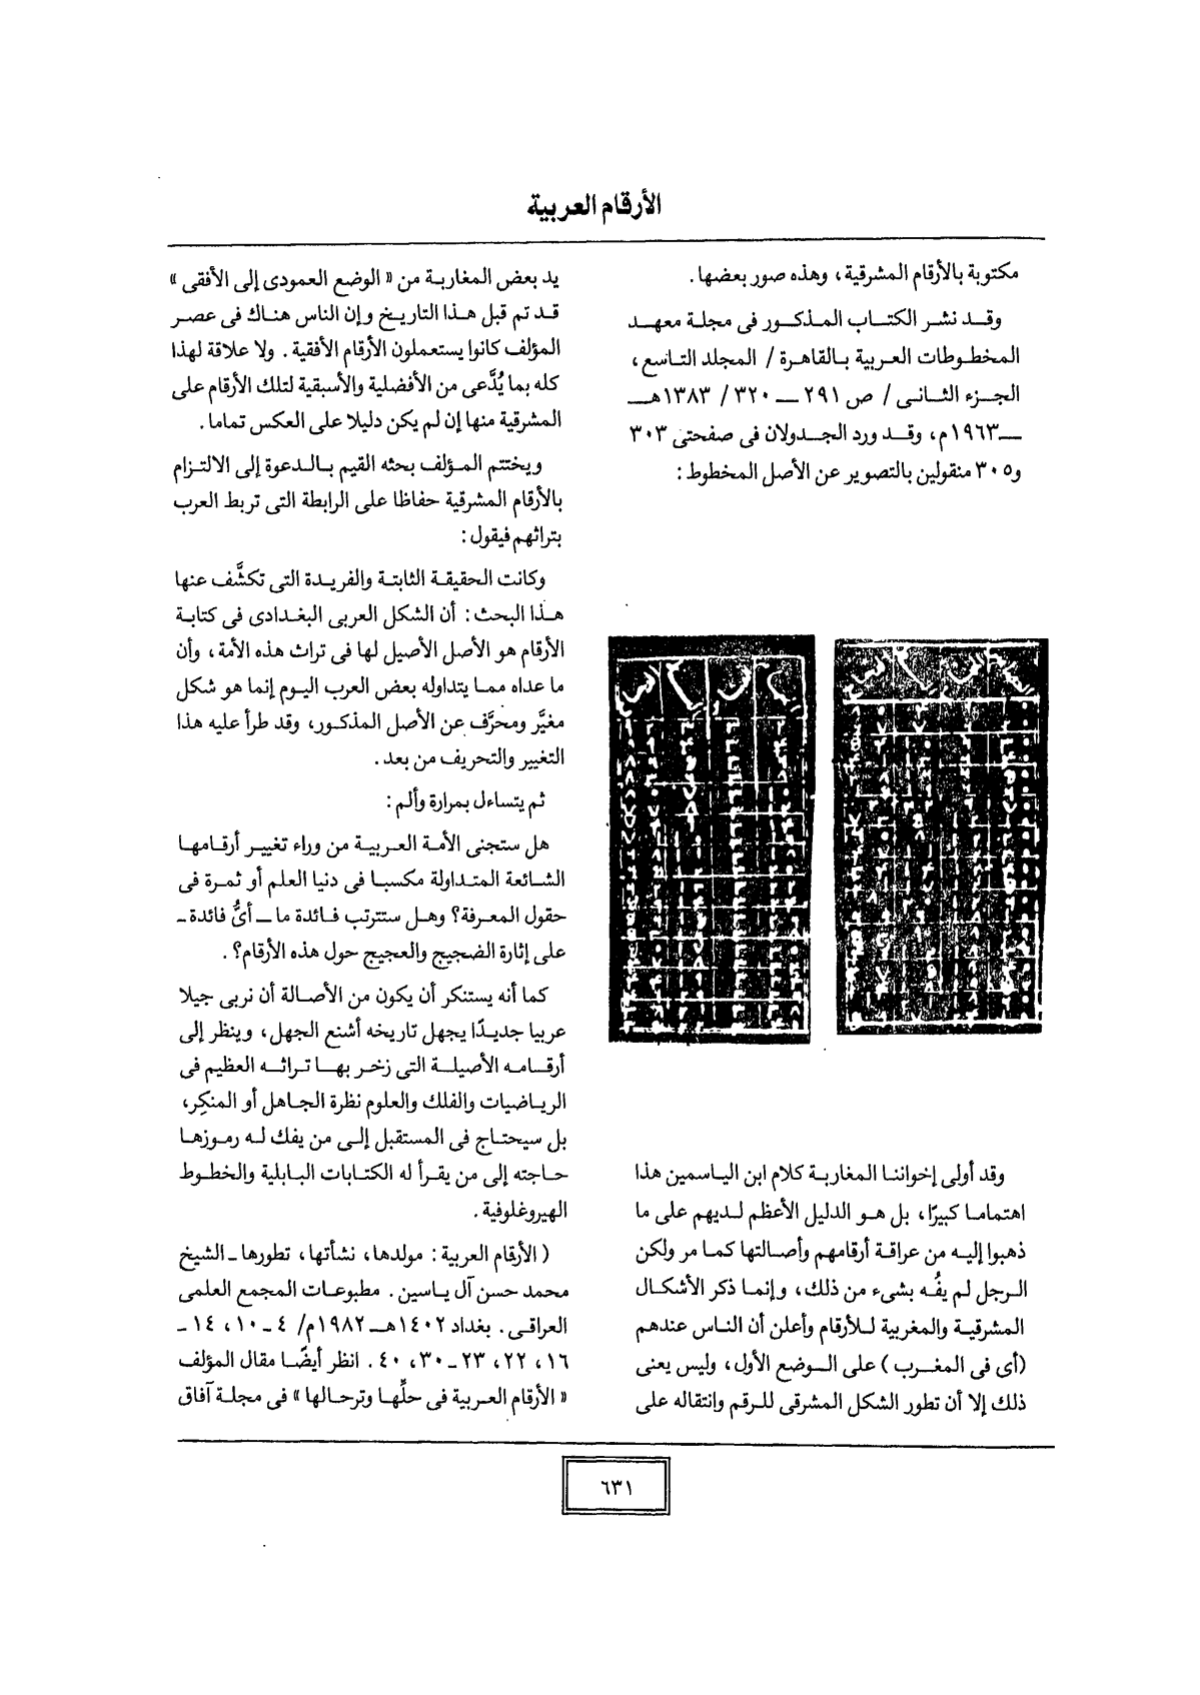 الأرقام العربية
مكتوبة بالأرقام المشرقية، وهذه صور بعضها.
وقد نشر الكتاب المذكور فى مجلة معهد
المخطوطات العربية بالقاهرة / المجلد التاسع،
الجزء الثانى / ص ٢٩١ ـ ٣٢٠ / ١٣٨٣هـ
ـ ١٩٦٣م، وقد ورد الجدولان فى صفحتى ٣٠٣
و٣٠٥ منقولين بالتصوير عن الأصل المخطوط:
وقد أولى إخواننا المغاربة كلام ابن الياسمين هذا
اهتماما كبيرًا، بل هو الدليل الأعظم لديهم على ما
ذهبوا إليه من عراقة أرقامهم وأصالتها كما مر ولكن
الرجل لم يفُه بشىء من ذلك، وإنما ذكر الأشكال
المشرقية والمغربية للأرقام وأعلن أن الناس عندهم
(أى فى المغرب) على الوضع الأول، وليس يعنى
ذلك إلا أن تطور الشكل المشرقى للرقم وانتقاله على
يد بعض المغاربة من « الوضع العمودى إلى الأفقى »
قد تم قبل هذا التاريخ وإن الناس هناك فى عصر
المؤلف كانوا يستعملون الأرقام الأفقية. ولا علاقة لهذا
كله بما يُدَّعى من الأفضلية والأسبقية لتلك الأرقام على
المشرقية منها إن لم يكن دليلا على العكس تماما.
ويختتم المؤلف بحثه القيم بالدعوة إلى الالتزام
بالأرقام المشرقية حفاظا على الرابطة التى تربط العرب
بتراثهم فيقول:
وكانت الحقيقة الثابتة والفريدة التى تكشَّف عنها
هذا البحث: أن الشكل العربى البغدادى فى كتابة
الأرقام هو الأصل الأصيل لها فى تراث هذه الأمة، وأن
ما عداه مما يتداوله بعض العرب اليوم إنما هو شكل
مغيَّر ومحرَّف عن الأصل المذكور، وقد طرأ عليه هذا
التغيير والتحريف من بعد.
ثم يتساءل بمرارة وألم:
هل ستجنى الأمة العربية من وراء تغيير أرقامها
الشائعة المتداولة مكسبا فى دنيا العلم أو ثمرة فى
حقول المعرفة؟ وهل ستترتب فائدة ما ـ أىُّ فائدة ـ
على إثارة الضجيج والعجيج حول هذه الأرقام؟.
كما أنه يستنكر أن يكون من الأصالة أن نربى جيلا
عربيا جديدًا يجهل تاريخه أشنع الجهل، وينظر إلى
أرقامه الأصيلة التى زخر بها تراثه العظيم فى
الرياضيات والفلك والعلوم نظرة الجاهل أو المنكِر،
بل سيحتاج فى المستقبل إلى من يفك له رموزها
حاجته إلى من يقرأ له الكتابات البابلية والخطوط
الهيروغلوفية.
( الأرقام العربية: مولدها، نشأتها، تطورها ـ الشيخ
محمد حسن آل ياسين. مطبوعات المجمع العلمى
العراقى. بغداد ١٤٠٢هـ ـ ١٩٨٢م/ ٤ ـ ١٠، ١٤ ـ
١٦، ٢٢، ٢٣ ـ ٣٠، ٤٠. انظر أيضًا مقال المؤلف
« الأرقام العربية فى حلِّها وترحالها » فى مجلة آفاق
٦٣١